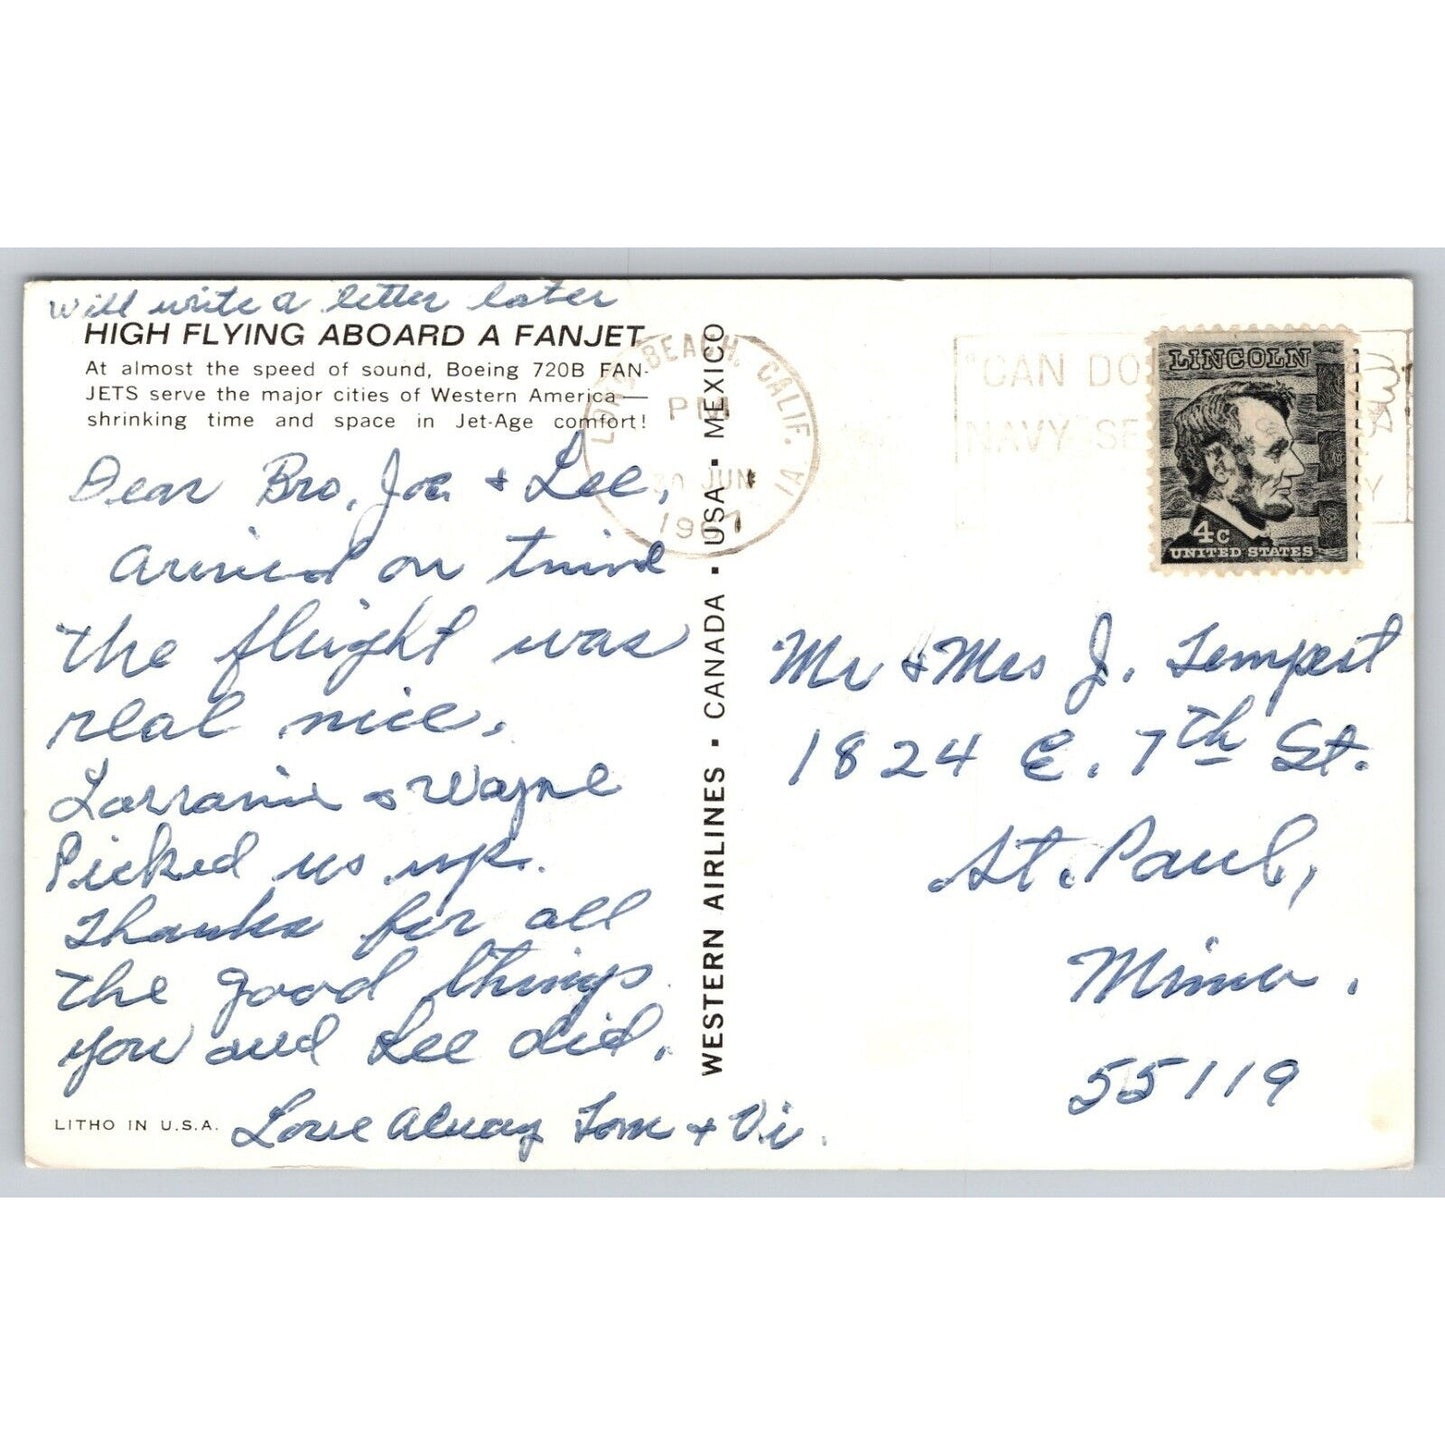 will write a letter later
HIGH FLYING ABOARD A FANJET
At almost the speed of sound, Boeing 720B FAN-
JETS serve the major cities of Western America—
shrinking time and space in Jet-Age comfort!
Dear Bro, Joe & Lee,
Arrived on time
the flight was
real nice.
Lorraine & Wayne
Picked us up.
Thanks for all
the good things
you and Lee did.
Love Alway Tom & Vi.
LITHO IN U.S.A.
WESTERN AIRLINES • CANADA • USA • MEXICO
LONG BEACH, CALIF.
PM
30 JUN
1967
"CAN DO
NAVY SE
Y
LINCOLN
4c
UNITED STATES
Mr & Mrs J. Tempest
1824 E. 7th St.
St. Paul,
Minn.
55119